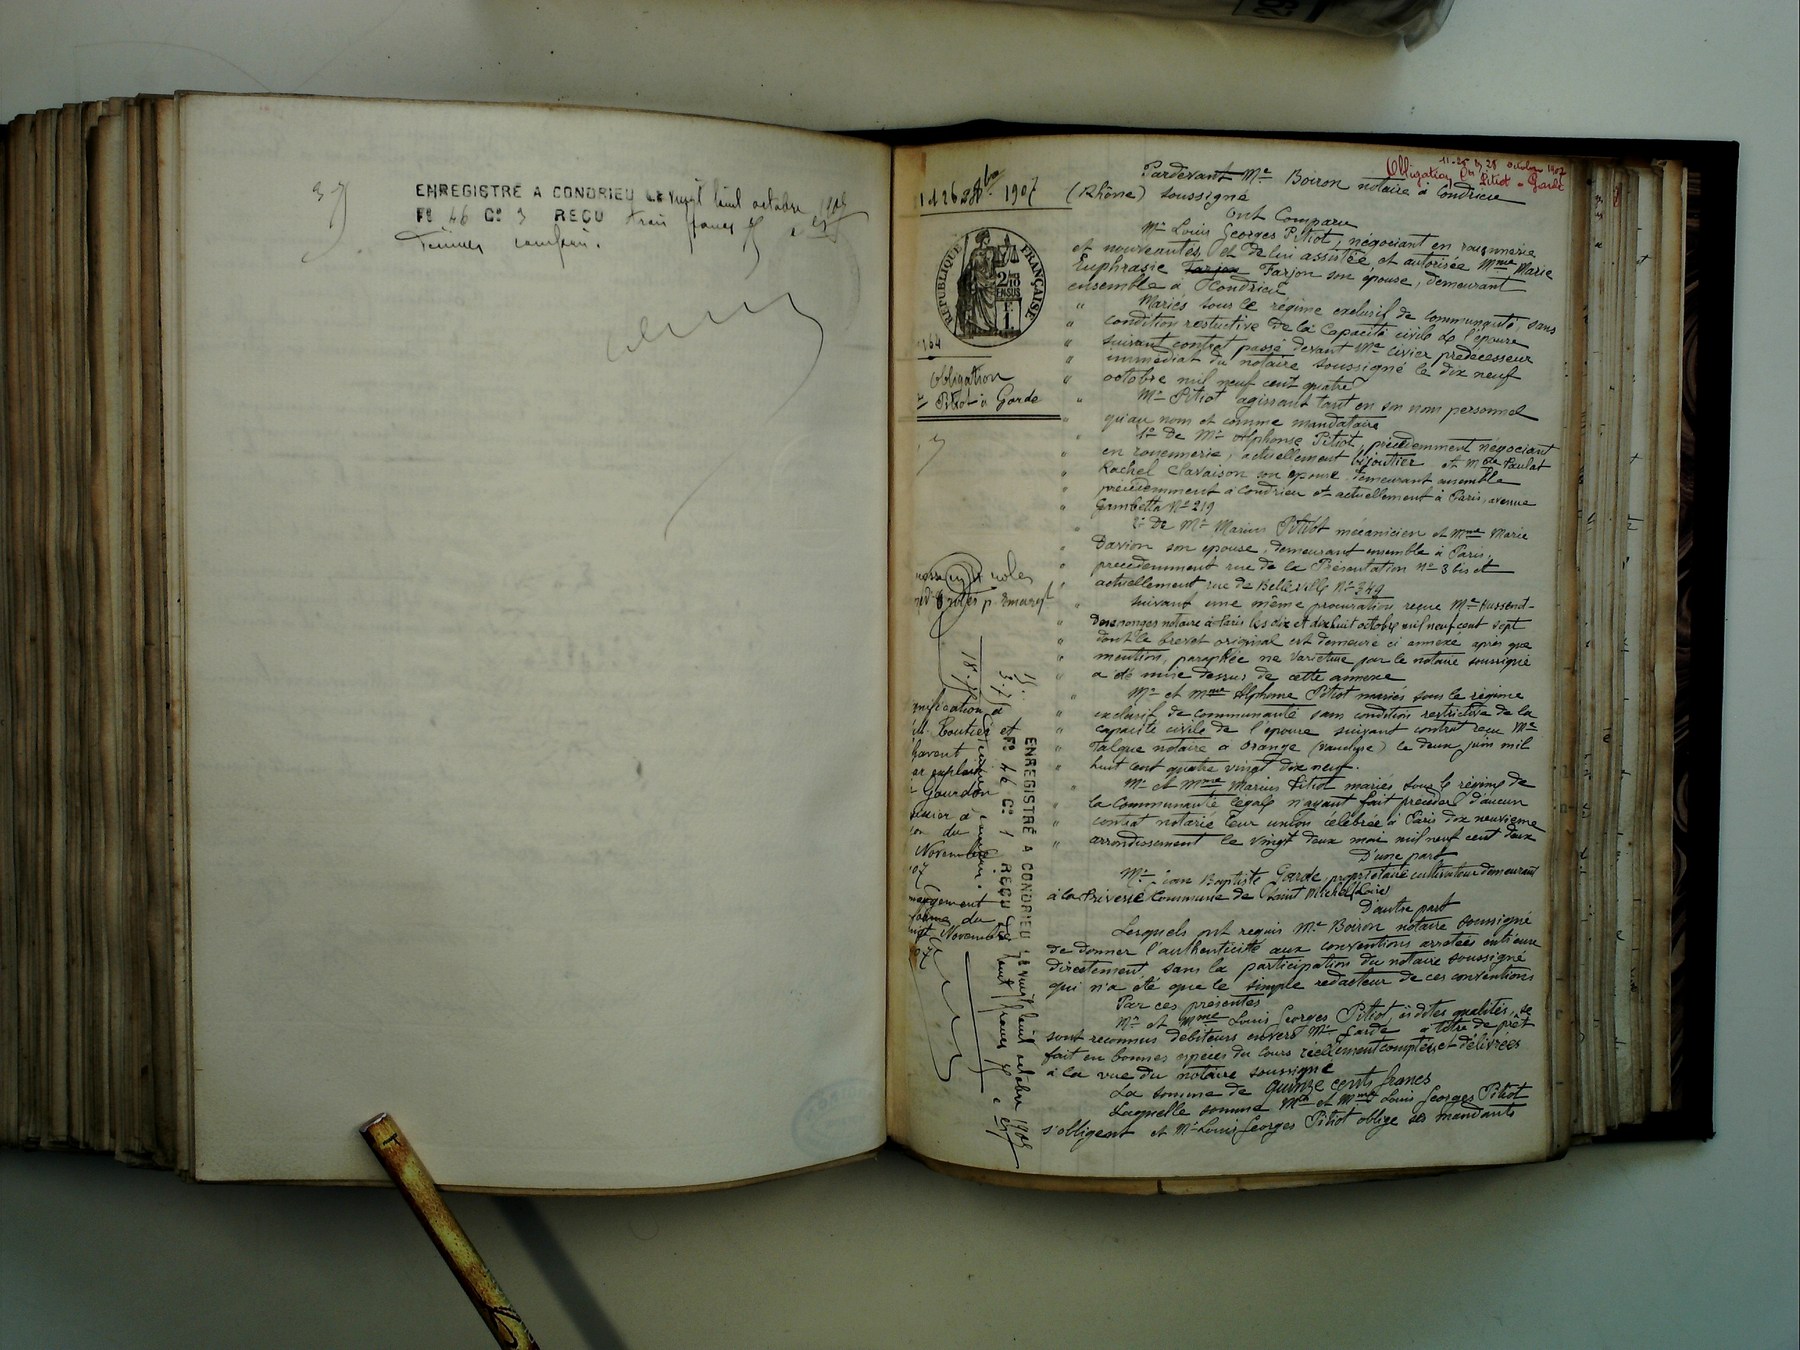 37
ENREGISTRÉ A CONDRIEU LE vingt huit octobre 1908
F° 46 C° 3 REÇU trois francs
Décimes compris.
11-26 & 28 octobre 1907
Obligation Pitiot à Garde
1 et 26 28 8bre 1907
RÉPUBLIQUE FRANÇAISE
2/10 EN SUS
1
164
Obligation
Pitiot à Garde
Pardevant Me Boiron notaire à Condrieu
(Rhône) soussigné
Ont Comparu
Mr Louis Georges Pitiot, négociant en rouennerie
et nouveautés, et de lui assistée et autorisée Mme Marie
Euphrasie Farjon Farjon son épouse, demeurant
ensemble à Condrieu
Mariés sous le régime exclusif de communauté, sans
condition restrictive de la capacité civile de l'épouse
suivant contrat passé devant Me Civier prédécesseur
immédiat du notaire soussigné le dix neuf
octobre mil neuf cent quatre
Mr Pitiot agissant tant en son nom personnel
qu'au nom et comme mandataire
1° de Mr Alphonse Pitiot, précédemment négociant
en rouennerie, actuellement bijoutier et Mme Paulat
Rachel Clavaison son épouse demeurant ensemble
précédemment à Condrieu et actuellement à Paris, avenue
Gambetta N° 219
2° De Mr Marius Pitiot mécanicien et Mme Marie
Davion son épouse, demeurant ensemble à Paris,
précédemment rue de la Présentation N° 3 bis et
actuellement rue de Belleville N° 349
suivant une même procuration reçue Me Hussenot-
Desenonges notaire à Paris les dix et dix huit octobre mil neuf cent sept
dont le brevet original est demeuré ci annexé après que
mention, paraphée ne varietur par le notaire soussigné
a été mise dessus de cette annexe
Mr et Mme Alphonse Pitiot mariés sous le régime
exclusif de communauté sans condition restrictive de la
capacité civile de l'épouse suivant contrat reçu Me
Talque notaire à Orange (Vaucluse) le deux juin mil
huit cent quatre vingt dix neuf.
Mr et Mme Marius Pitiot mariés sous le régime de
la Communauté légale n'ayant fait précéder d'aucun
contrat notarié leur union célébrée à Paris dix neuvième
arrondissement le vingt deux mai mil neuf cent deux
D'une part
Mr Jean Baptiste Garde, propriétaire cultivateur demeurant
à la Priverie Commune de Saint Michel (Loire)
D'autre part
Lesquels ont requis Me Boiron notaire soussigné
de donner l'authenticité aux conventions arrêtées entr'eux
directement, sans la participation du notaire soussigné
qui n'a été que le simple rédacteur de ces conventions
Par ces présentes
Mr et Mme Louis Georges Pitiot, ès dites qualités, se
sont reconnus débiteurs envers Mr Garde à titre de prêt
fait en bonnes espèces du cours réellement comptées et délivrées
à la vue du notaire soussigné
La somme de quinze cents francs
Laquelle somme Mr et Mme Louis Georges Pitiot
s'obligent et Mr Louis Georges Pitiot oblige ses mandants
rôles
Coutier et
Gourdon
à
du
Novembre
07
du
Novembre
07
ENREGISTRÉ A CONDRIEU LE vingt huit octobre 1908
F° 46 C° 1 REÇU francs